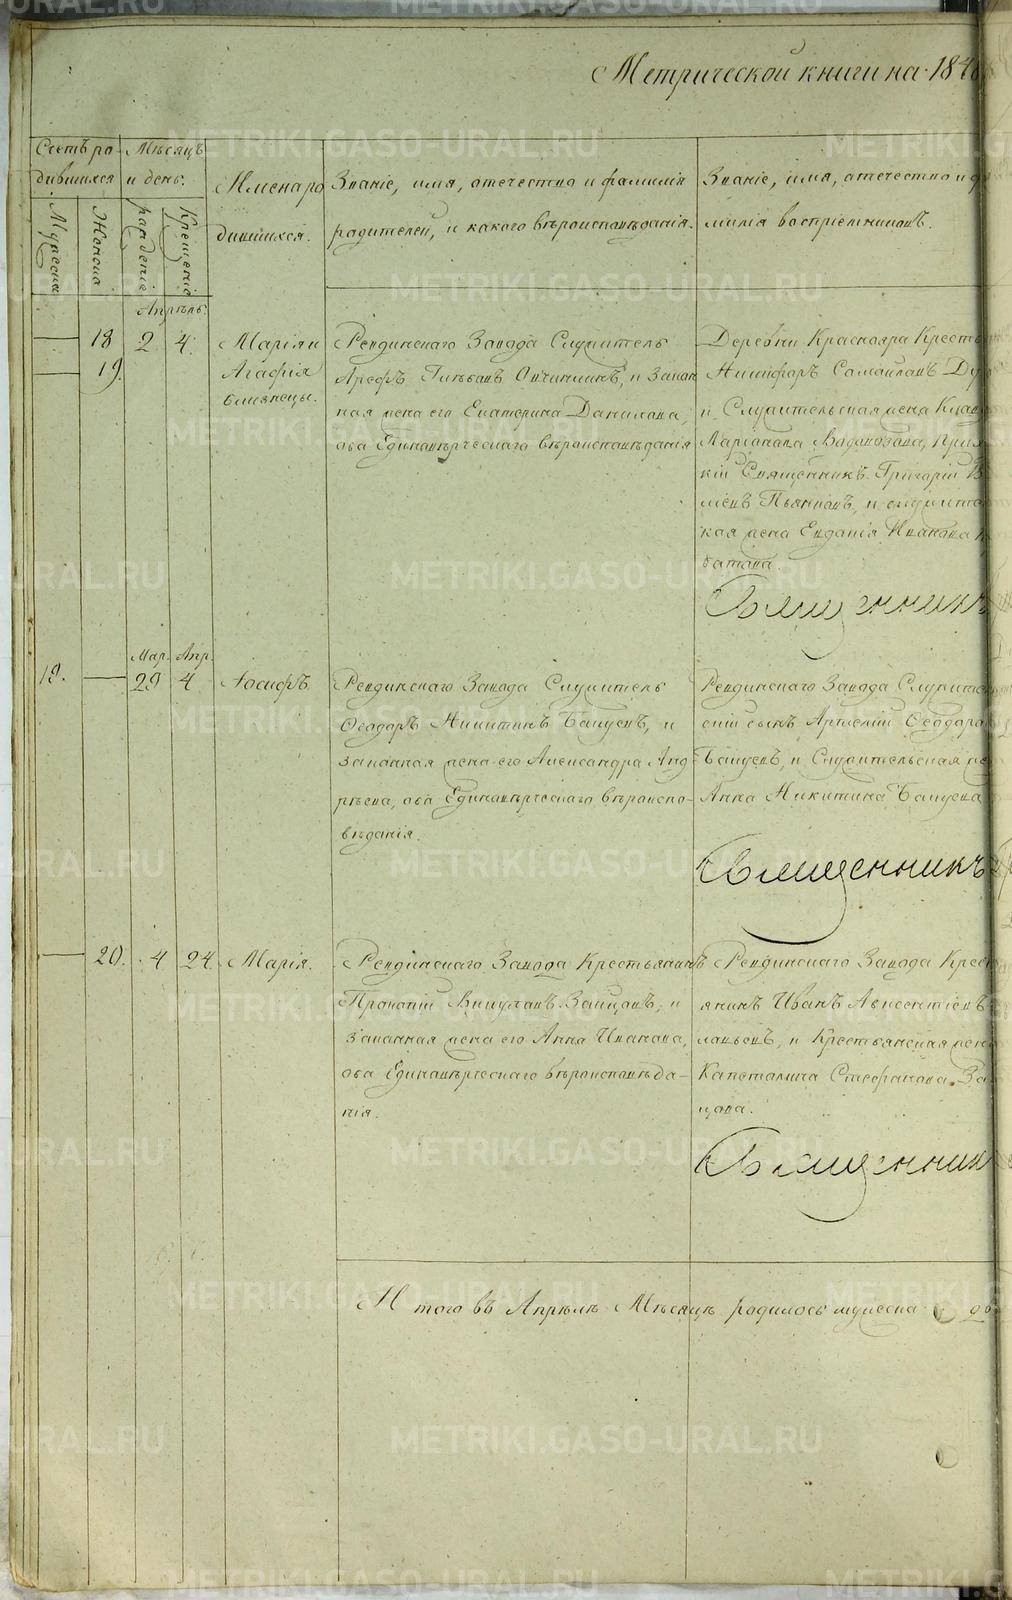 Метрической книги на 184
Счетъ ро-
дившихся
Мужеска
Женска
Мѣсяцъ
и день.
рожденіе
Крещеніе
Имена ро
дившихся.
Званіе, имя, отечество и фамилія
родителей, и какого вѣроисповѣданія.
Званіе, имя, отечество и фа
милія воспріемниковъ.
Апрѣль.
18 2 4. Марія и
19. Агафія
близнецы.
Ревдинскаго Завода Служитель
Арефъ Глѣбовъ Овчинникъ, и закон
ная жена его Екатерина Данилова,
оба Единовѣрческаго вѣроисповѣданія
Деревни Краснояра Крестья
Никифоръ Самойловъ
и Служительская жена
Ларіонова Водовозова,
кій Священникъ Григорій
Пьянковъ, и служитель
кая жена Евдокія Иванова
батова.
Священникъ
Мар. Апр.
19. 29 4 Іосифъ
Ревдинскаго Завода Служитель
Ѳеодоръ Никитинъ Бапуевъ, и
законная жена его Александра Анд
рѣева, оба Единовѣрческаго вѣроиспо-
вѣданія.
Ревдинскаго Завода Служитель
скій сынъ Артемій Ѳеодоров
Бапуевъ, и Служительская же
Анна Никитина Бапуева
Священникъ
20. 4 24. Марія.
Ревдинскаго Завода Крестьянинъ
Прокопій Викуловъ Зайцовъ, и
законная жена его Анна Иванова,
оба Единовѣрческаго вѣроисповѣда-
нія.
Ревдинскаго Завода Крест
янинъ Иванъ Авксентіевъ
и Крестьянская жена
Капеталина Стефанова За
цова.
Священник
И того въ Апрѣлѣ Мѣсяцѣ родилось мужеска
METRIKI.GASO-URAL.RU